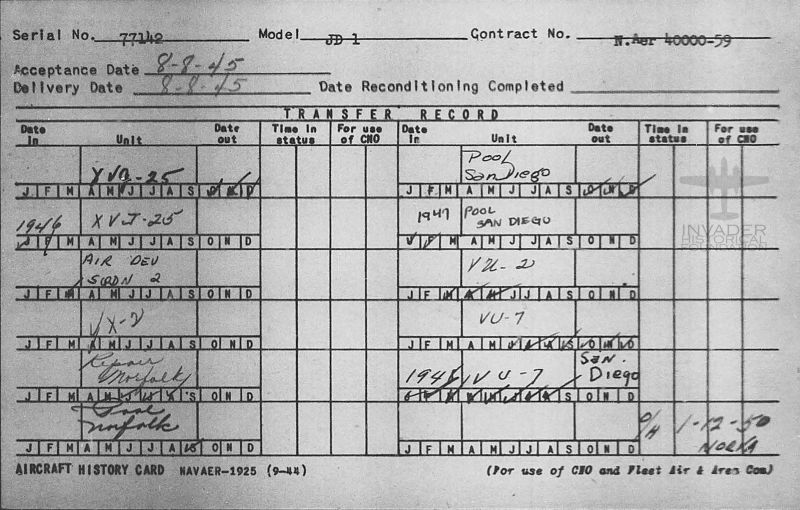 Serial No. 77142 Model JD 1 Contract No. N.Aer 40000-59
Acceptance Date 8-8-45
Delivery Date 8-8-45 Date Reconditioning Completed
TRANSFER RECORD
Date in Unit Date out Time in status For use of CNO Date in Unit Date out Time in status For use of CNO
XVJ-25 Pool San Diego
J F M A M J J A S O N D J F M A M J J A S O N D
1946 XVJ-25 1947 POOL SAN DIEGO
J F M A M J J A S O N D J F M A M J J A S O N D
AIR DEV SQDN 2 VU-2
J F M A M J J A S O N D J F M A M J J A S O N D
VX-2 VU-7
J F M A M J J A S O N D J F M A M J J A S O N D
Repair Norfolk 1948 VU-7 San Diego
J F M A M J J A S O N D J F M A M J J A S O N D
Pool Norfolk O/H 1-12-50 NORVA
J F M A M J J A S O N D J F M A M J J A S O N D
AIRCRAFT HISTORY CARD NAVAER-1925 (9-44) (For use of CNO and Fleet Air & Area Com)
INVADER
HISTORICAL
FOUNDATION